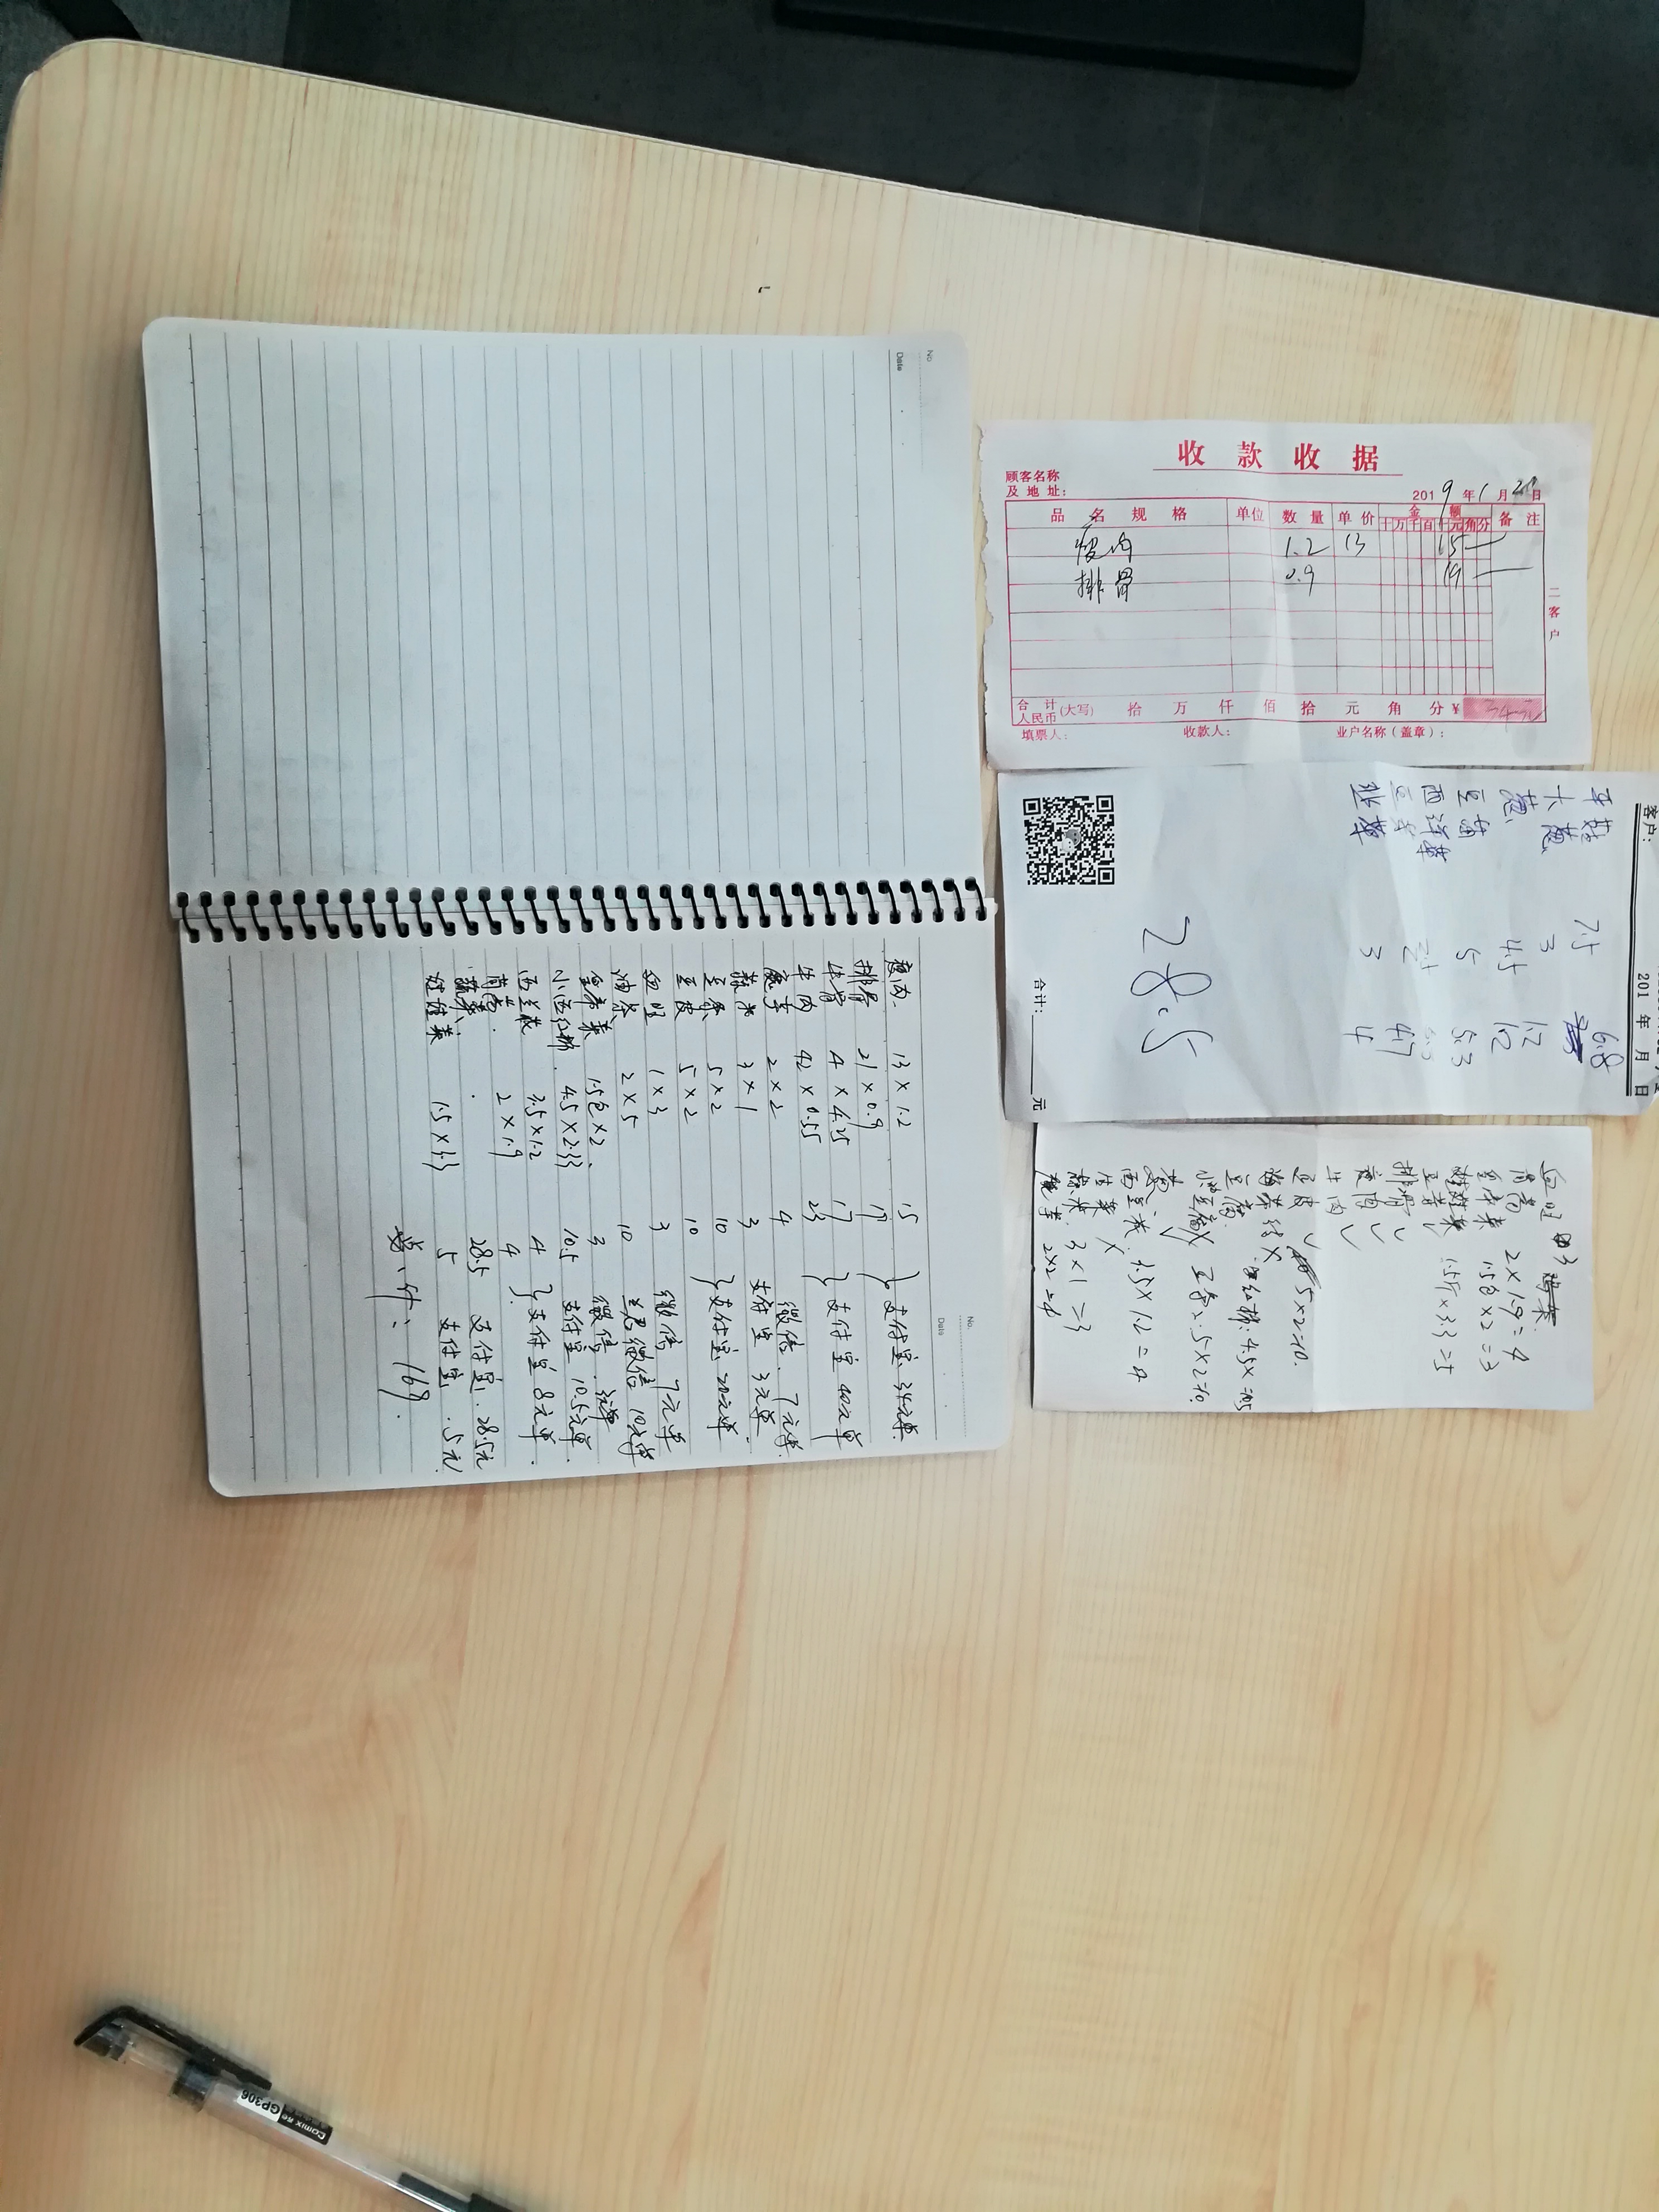 收款收据
二客户
2019年1月24日
顾客名称
及地址:
品名 规格 单位 数量 单价 金额 备注
十万千百十元角分
瘦肉 1.2 13 15
排骨 0.9 19
合计 人民币(大写) 拾 万 仟 佰 拾 元 角 分 ¥
填票人: 收款人: 业户名称(盖章):
客户: 201 年 月 日
平菇 7.5 6.8
大葱 3 1.2
葱 4.5 1.2
豆苗 5 5.3
西洋菜
豆芽 2 4.7
韭菜 3 4
28.5
合计: 元
血旺 3
茼蒿 2×1.9=4
皇帝菜 1.5包×2=3
娃娃菜 1.5斤×3.3=5
豆芽✓
排骨✓
瘦肉✓
牛肉✓
豆皮✓ 5×2=10.
海带结×
豆腐. 红柿:4.5×=10.5
小豆腐× 豆条 5×2=10.
葱.✓
西兰花. 3.5×1.2=4
生菜×
蒜米. 3×1=3
魔芋 2×2=4
No
Date
No.
Date
瘦肉 13×1.2 15 支付宝 34元单.
排骨 21×0.9 19
牛骨 4×4.25 17 支付宝 40元单
牛肉 42×0.55 23
魔芋 2×2 4 微信. 7元单.
蒜米 3×1 3 支付宝 3元单.
豆条 5×2 10 支付宝 20元单
豆皮 5×2 10
血旺 1×3 3 微信 7元单
油条 2×5 10 兰君微信 10元单
皇帝菜 1.5包×2. 3 微信. 3元单
小西红柿. 4.5×2.33 10.5 支付宝 10.5元单.
西兰花 3.5×1.2 4 支付宝 8元单.
茼蒿. 2×1.9 4
蔬菜. 28.5 支付宝. 28.5元
娃娃菜 1.5×3.3 5 支付宝. 5元
总计: 169.
comix GP306